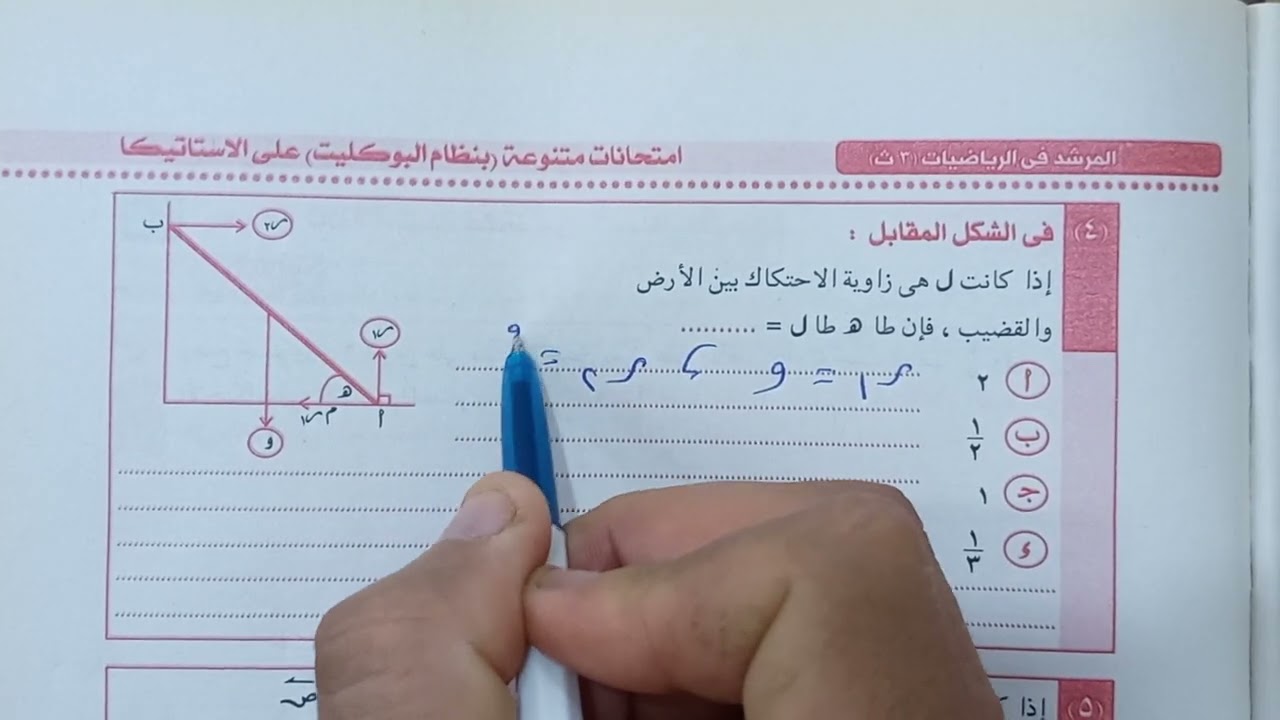 المرشد فى الرياضيات (٣ ث)
امتحانات متنوعة (بنظام البوكليت) على الاستاتيكا
(٤)
فى الشكل المقابل :
إذا كانت ل هى زاوية الاحتكاك بين الأرض
والقضيب ، فإن طا هـ طا ل = ..........
أ ٢
ب ١/٢
ج ١
د ١/٣
ب
٢س
١س
هـ
م ١س
أ
و
١س = و
٢س =
و
(٥)
إذا
ص